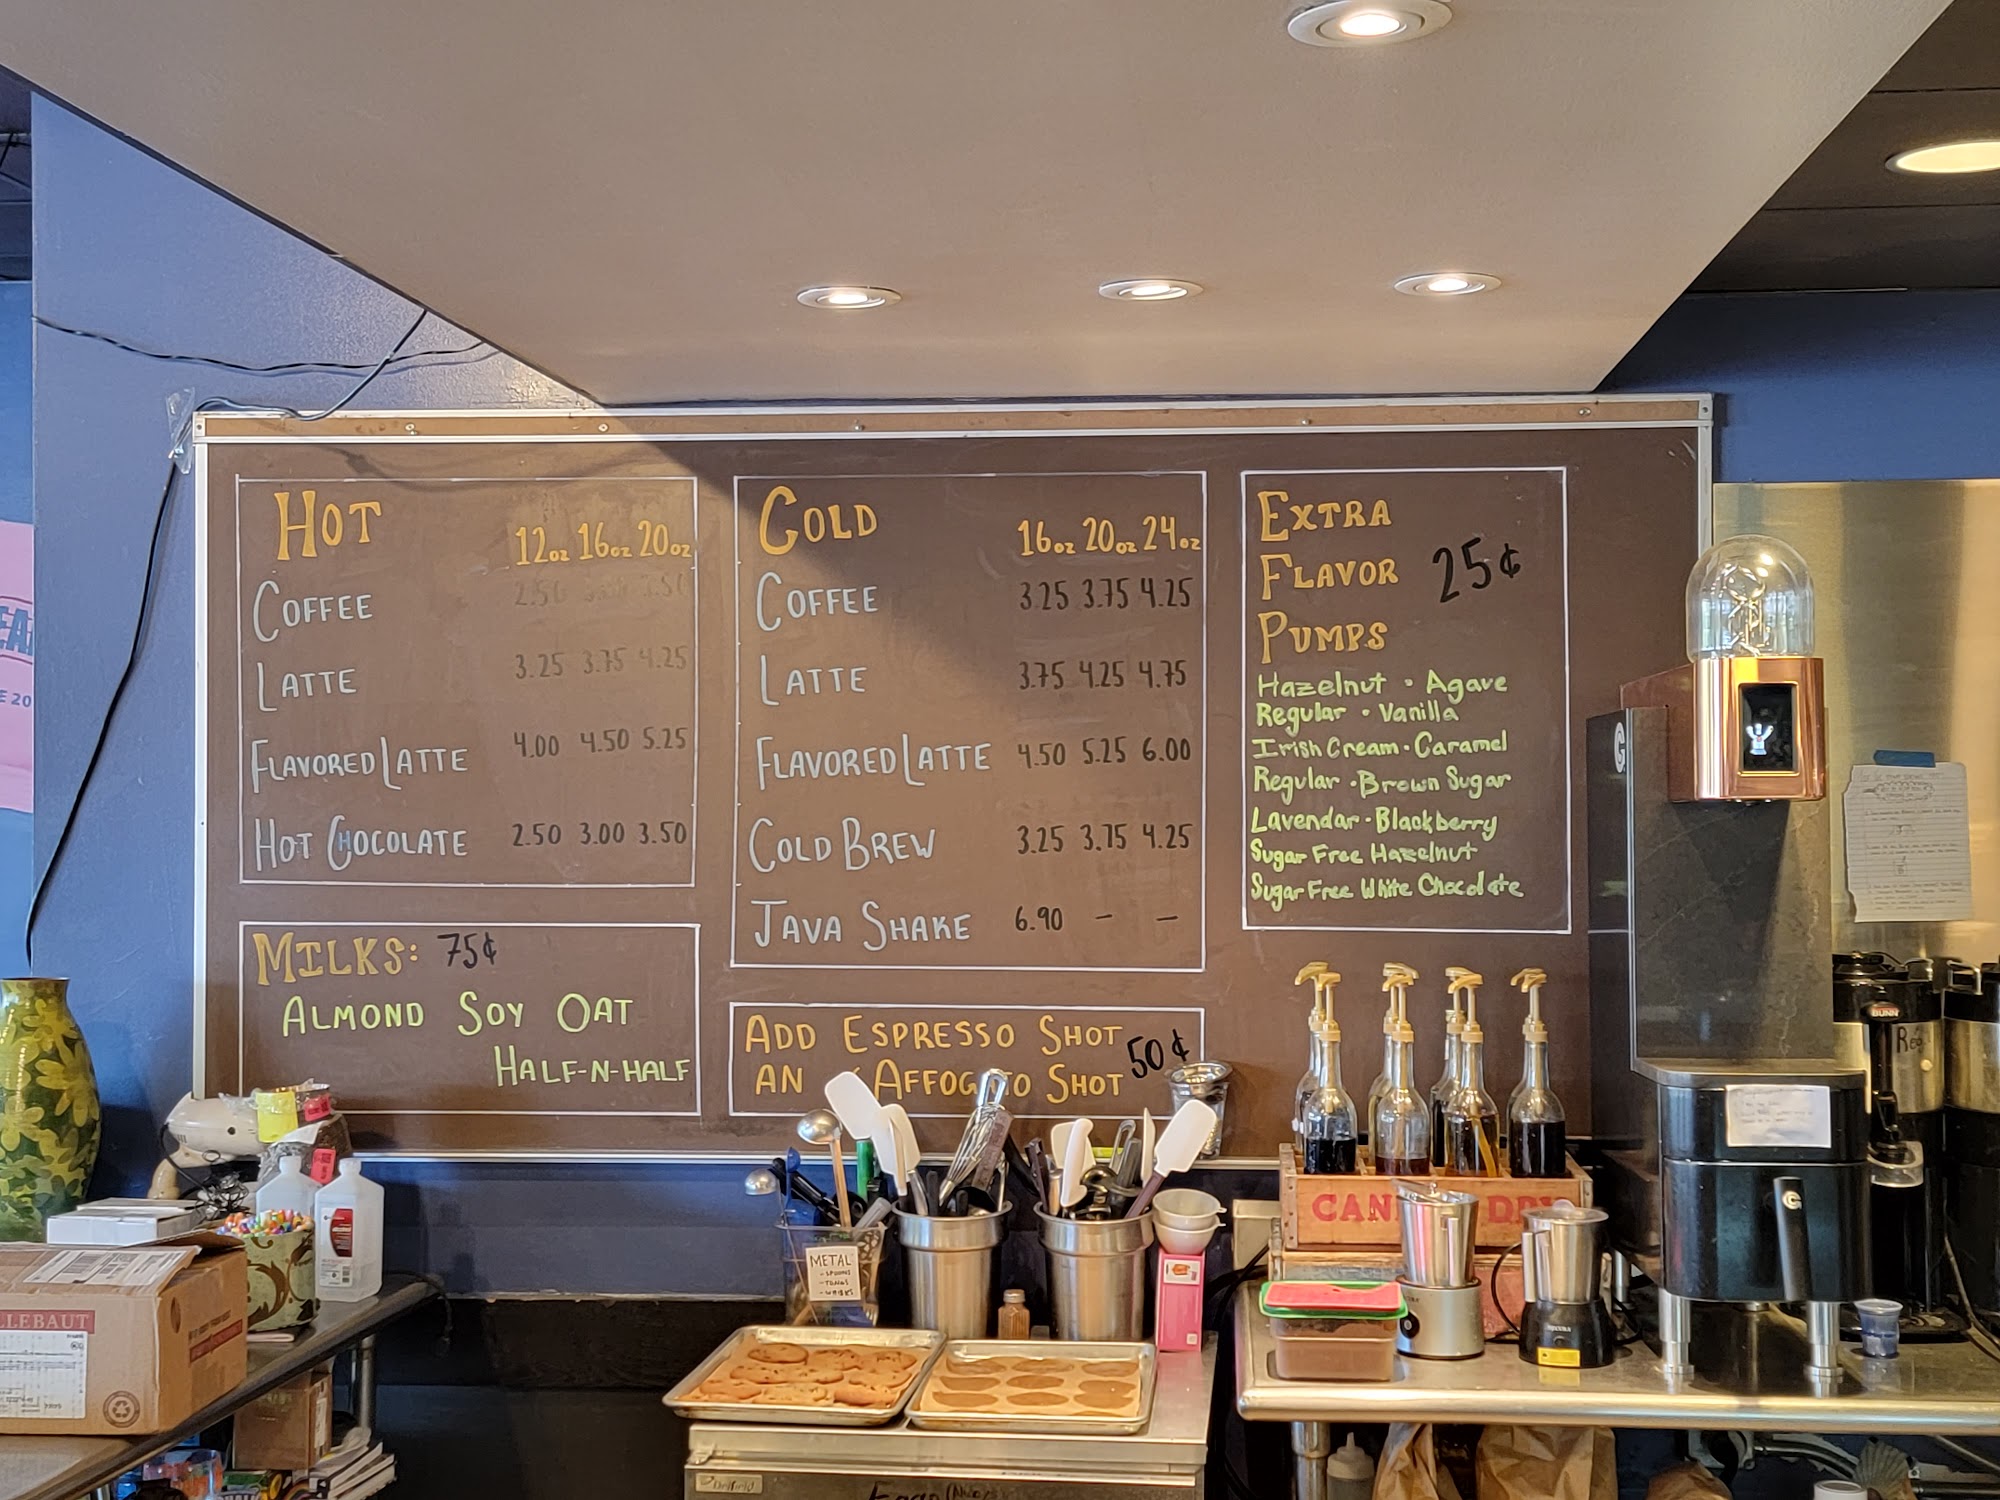 HOT
12oz 16oz 20oz
COFFEE 2.50 3.50
LATTE 3.25 3.75 4.25
FLAVORED LATTE 4.00 4.50 5.25
HOT CHOCOLATE 2.50 3.00 3.50
MILKS: 75¢
ALMOND SOY OAT
HALF-N-HALF
COLD
16oz 20oz 24oz
COFFEE 3.25 3.75 4.25
LATTE 3.75 4.25 4.75
FLAVORED LATTE 4.50 5.25 6.00
COLD BREW 3.25 3.75 4.25
JAVA SHAKE 6.90 – –
ADD ESPRESSO SHOT
AN AFFOG TO SHOT
50¢
EXTRA
FLAVOR 25¢
PUMPS
Hazelnut • Agave
Regular • Vanilla
Irish Cream • Caramel
Regular • Brown Sugar
Lavendar • Blackberry
Sugar Free Hazelnut
Sugar Free White Chocolate
G
BUNN
CAN DR
METAL
- SPOONS
- TONGS
- WHISKS
LLEBAUT
Delfield
E 20